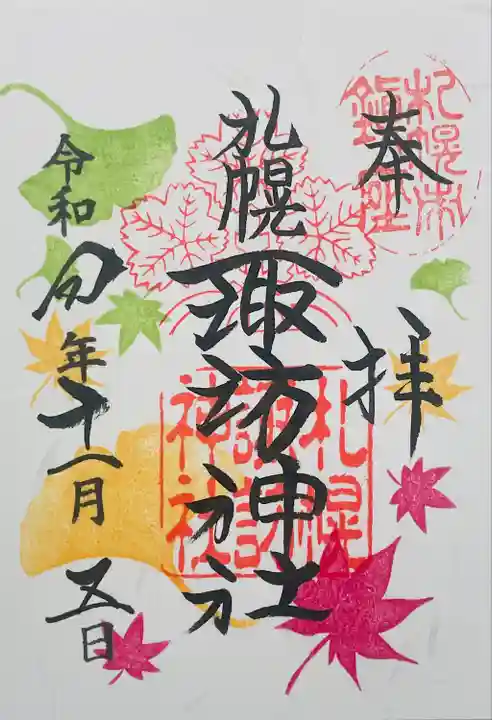 札幌市
鎮座
奉拝
札幌諏訪神社
札幌
諏訪
神社
令和四年十一月五日